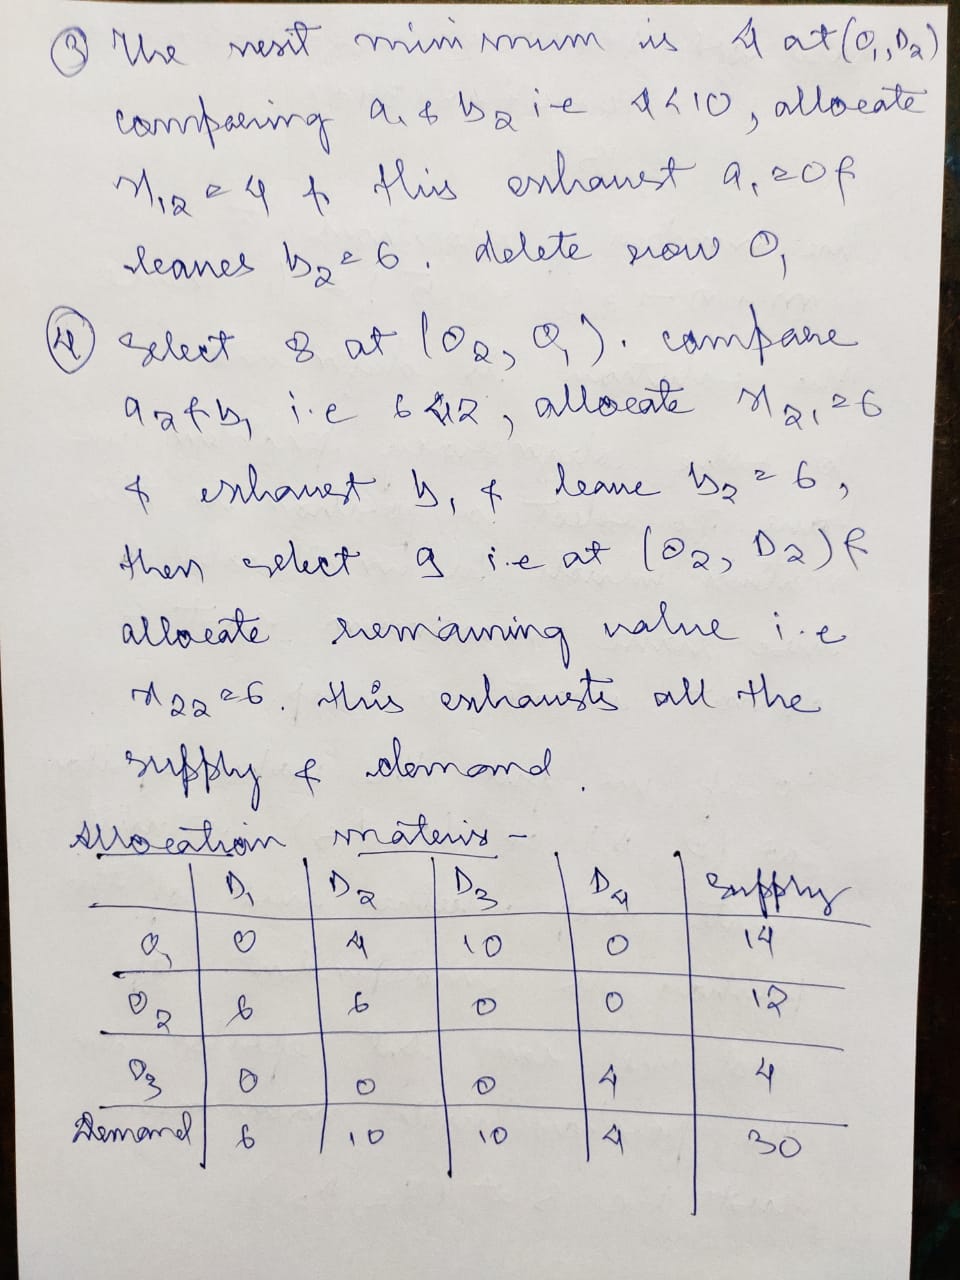 ③ The next minimum is 4 at (O₁, D₂)
comparing a₁ & b₂ i.e 4<10, allocate
x₁₂ = 4 & this exhaust a₁ = 0 &
leaves b₂ = 6. delete row O₁
④ Select 8 at (O₂, O₁). compare
a₂ & b₁ i.e 6<12, allocate x₂₁ = 6
& exhaust b₁ & leave b₂ = 6,
then select 9 i.e at (O₂, D₂) &
allocate remaining value i.e
x₂₂ = 6. this exhausts all the
supply & demand.
Allocation matrix -
D₁ D₂ D₃ D₄ Supply
O₁ 0 4 10 0 14
O₂ 6 6 0 0 12
O₃ 0 0 0 4 4
Demand 6 10 10 4 30